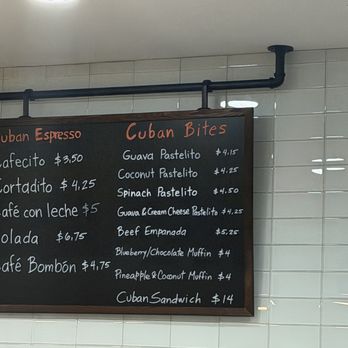 uban Espresso
afecito $3,50
Cortadito $4,25
afé con leche $5
olada $6,75
afé Bombón $4,75
Cuban Bites
Guava Pastelito $4,15
Coconut Pastelito $4,25
Spinach Pastelito $4,50
Guava & Cream Cheese Pastelito $4,25
Beef Empanada $5,25
Blueberry/Chocolate Muffin $4
Pineapple & Coconut Muffin $4
Cuban Sandwich $14